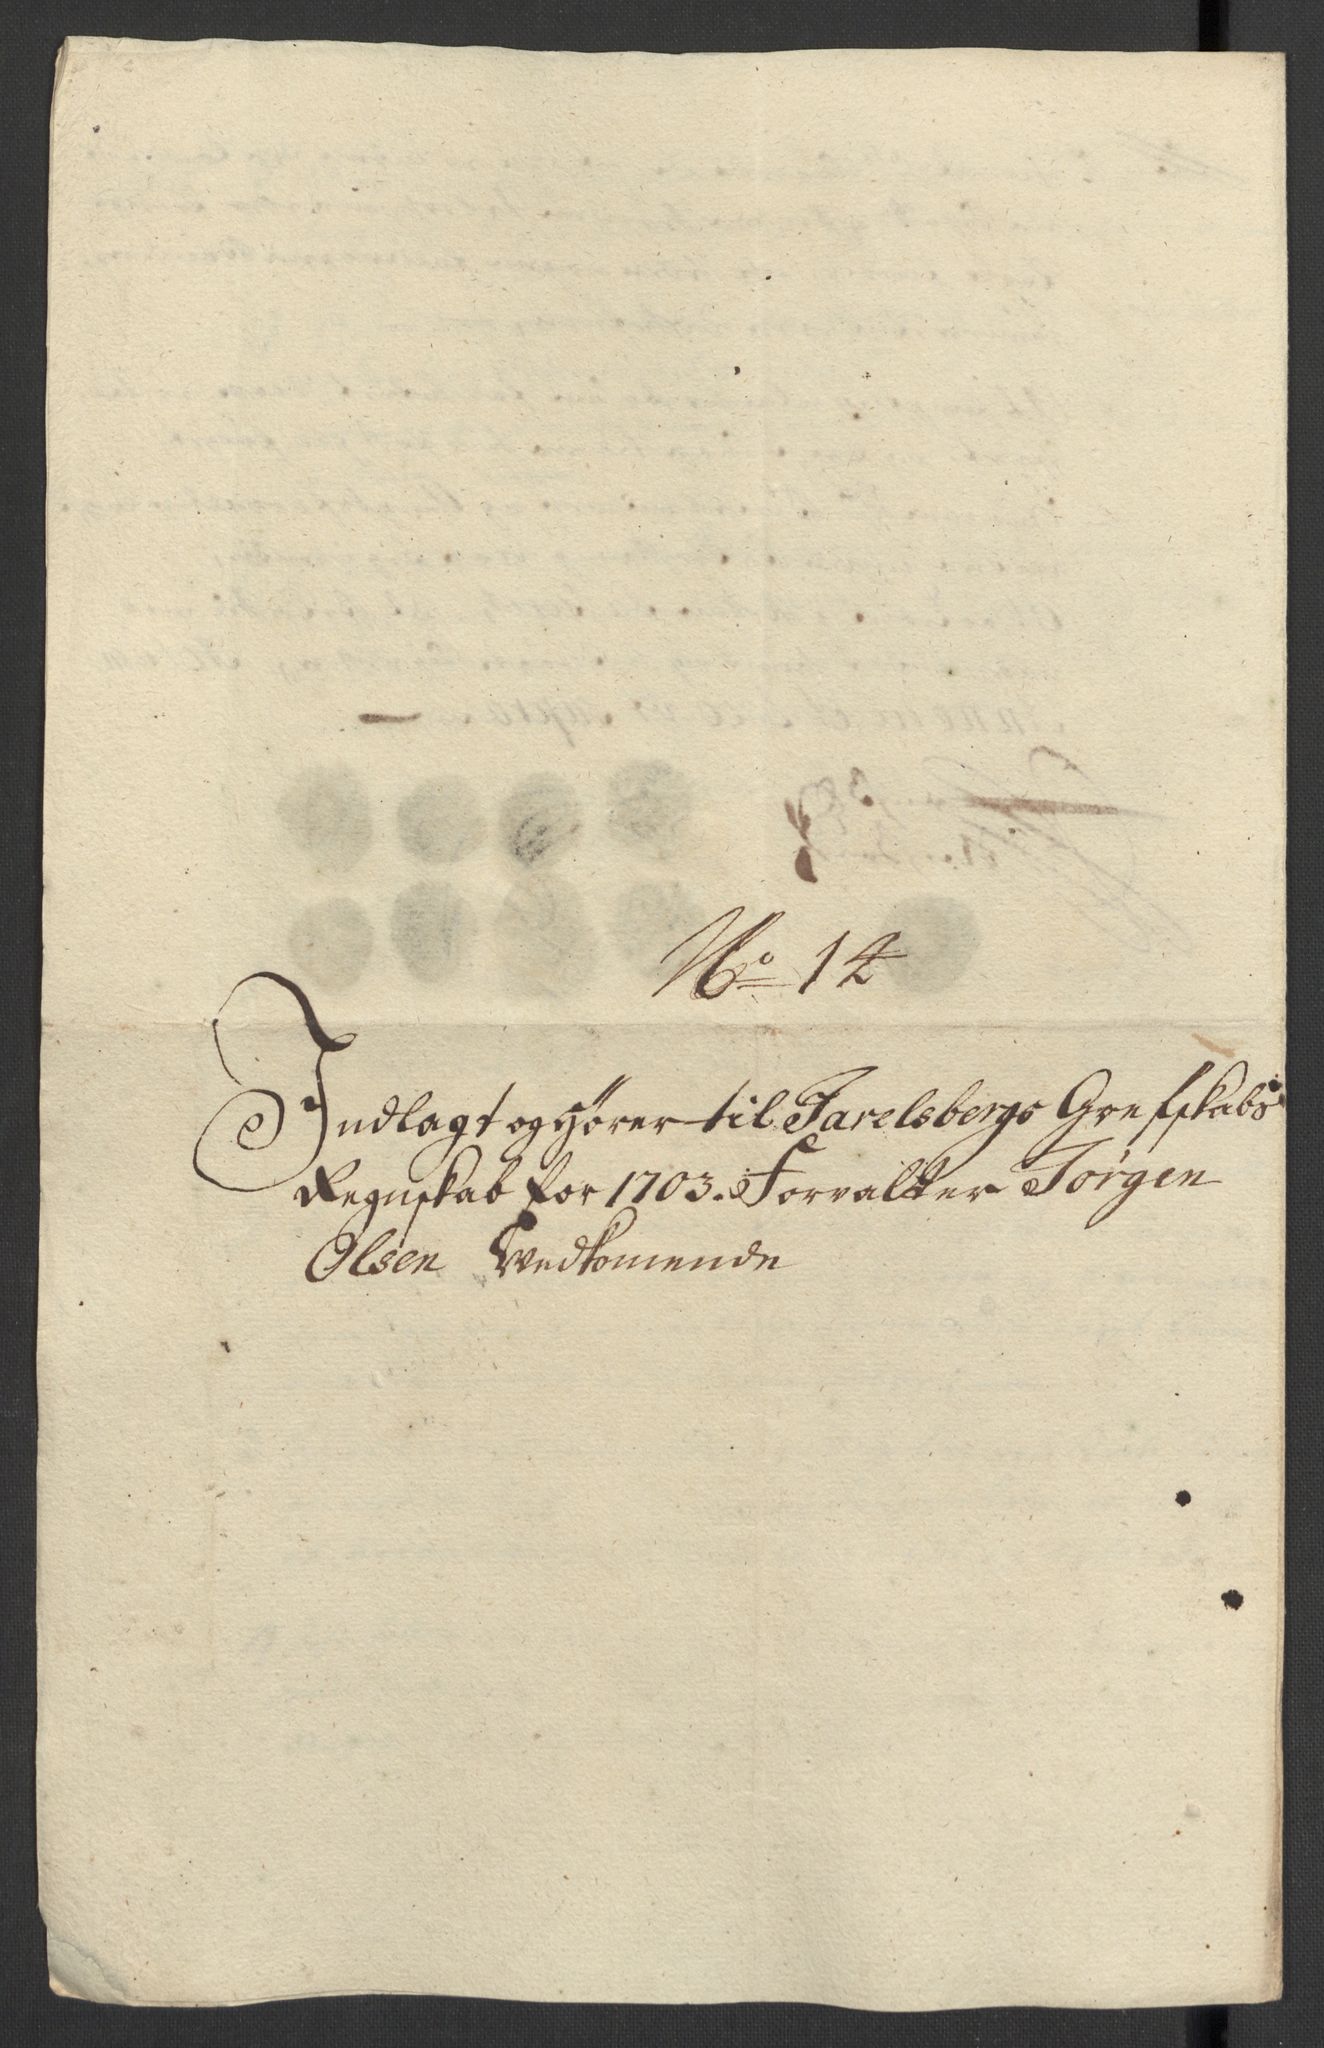 No 14
Indlagt og hører til Jarelsbergs Grefskabs
Regnskab for 1703. Forvalter Jørgen
Olsen Vedkomende